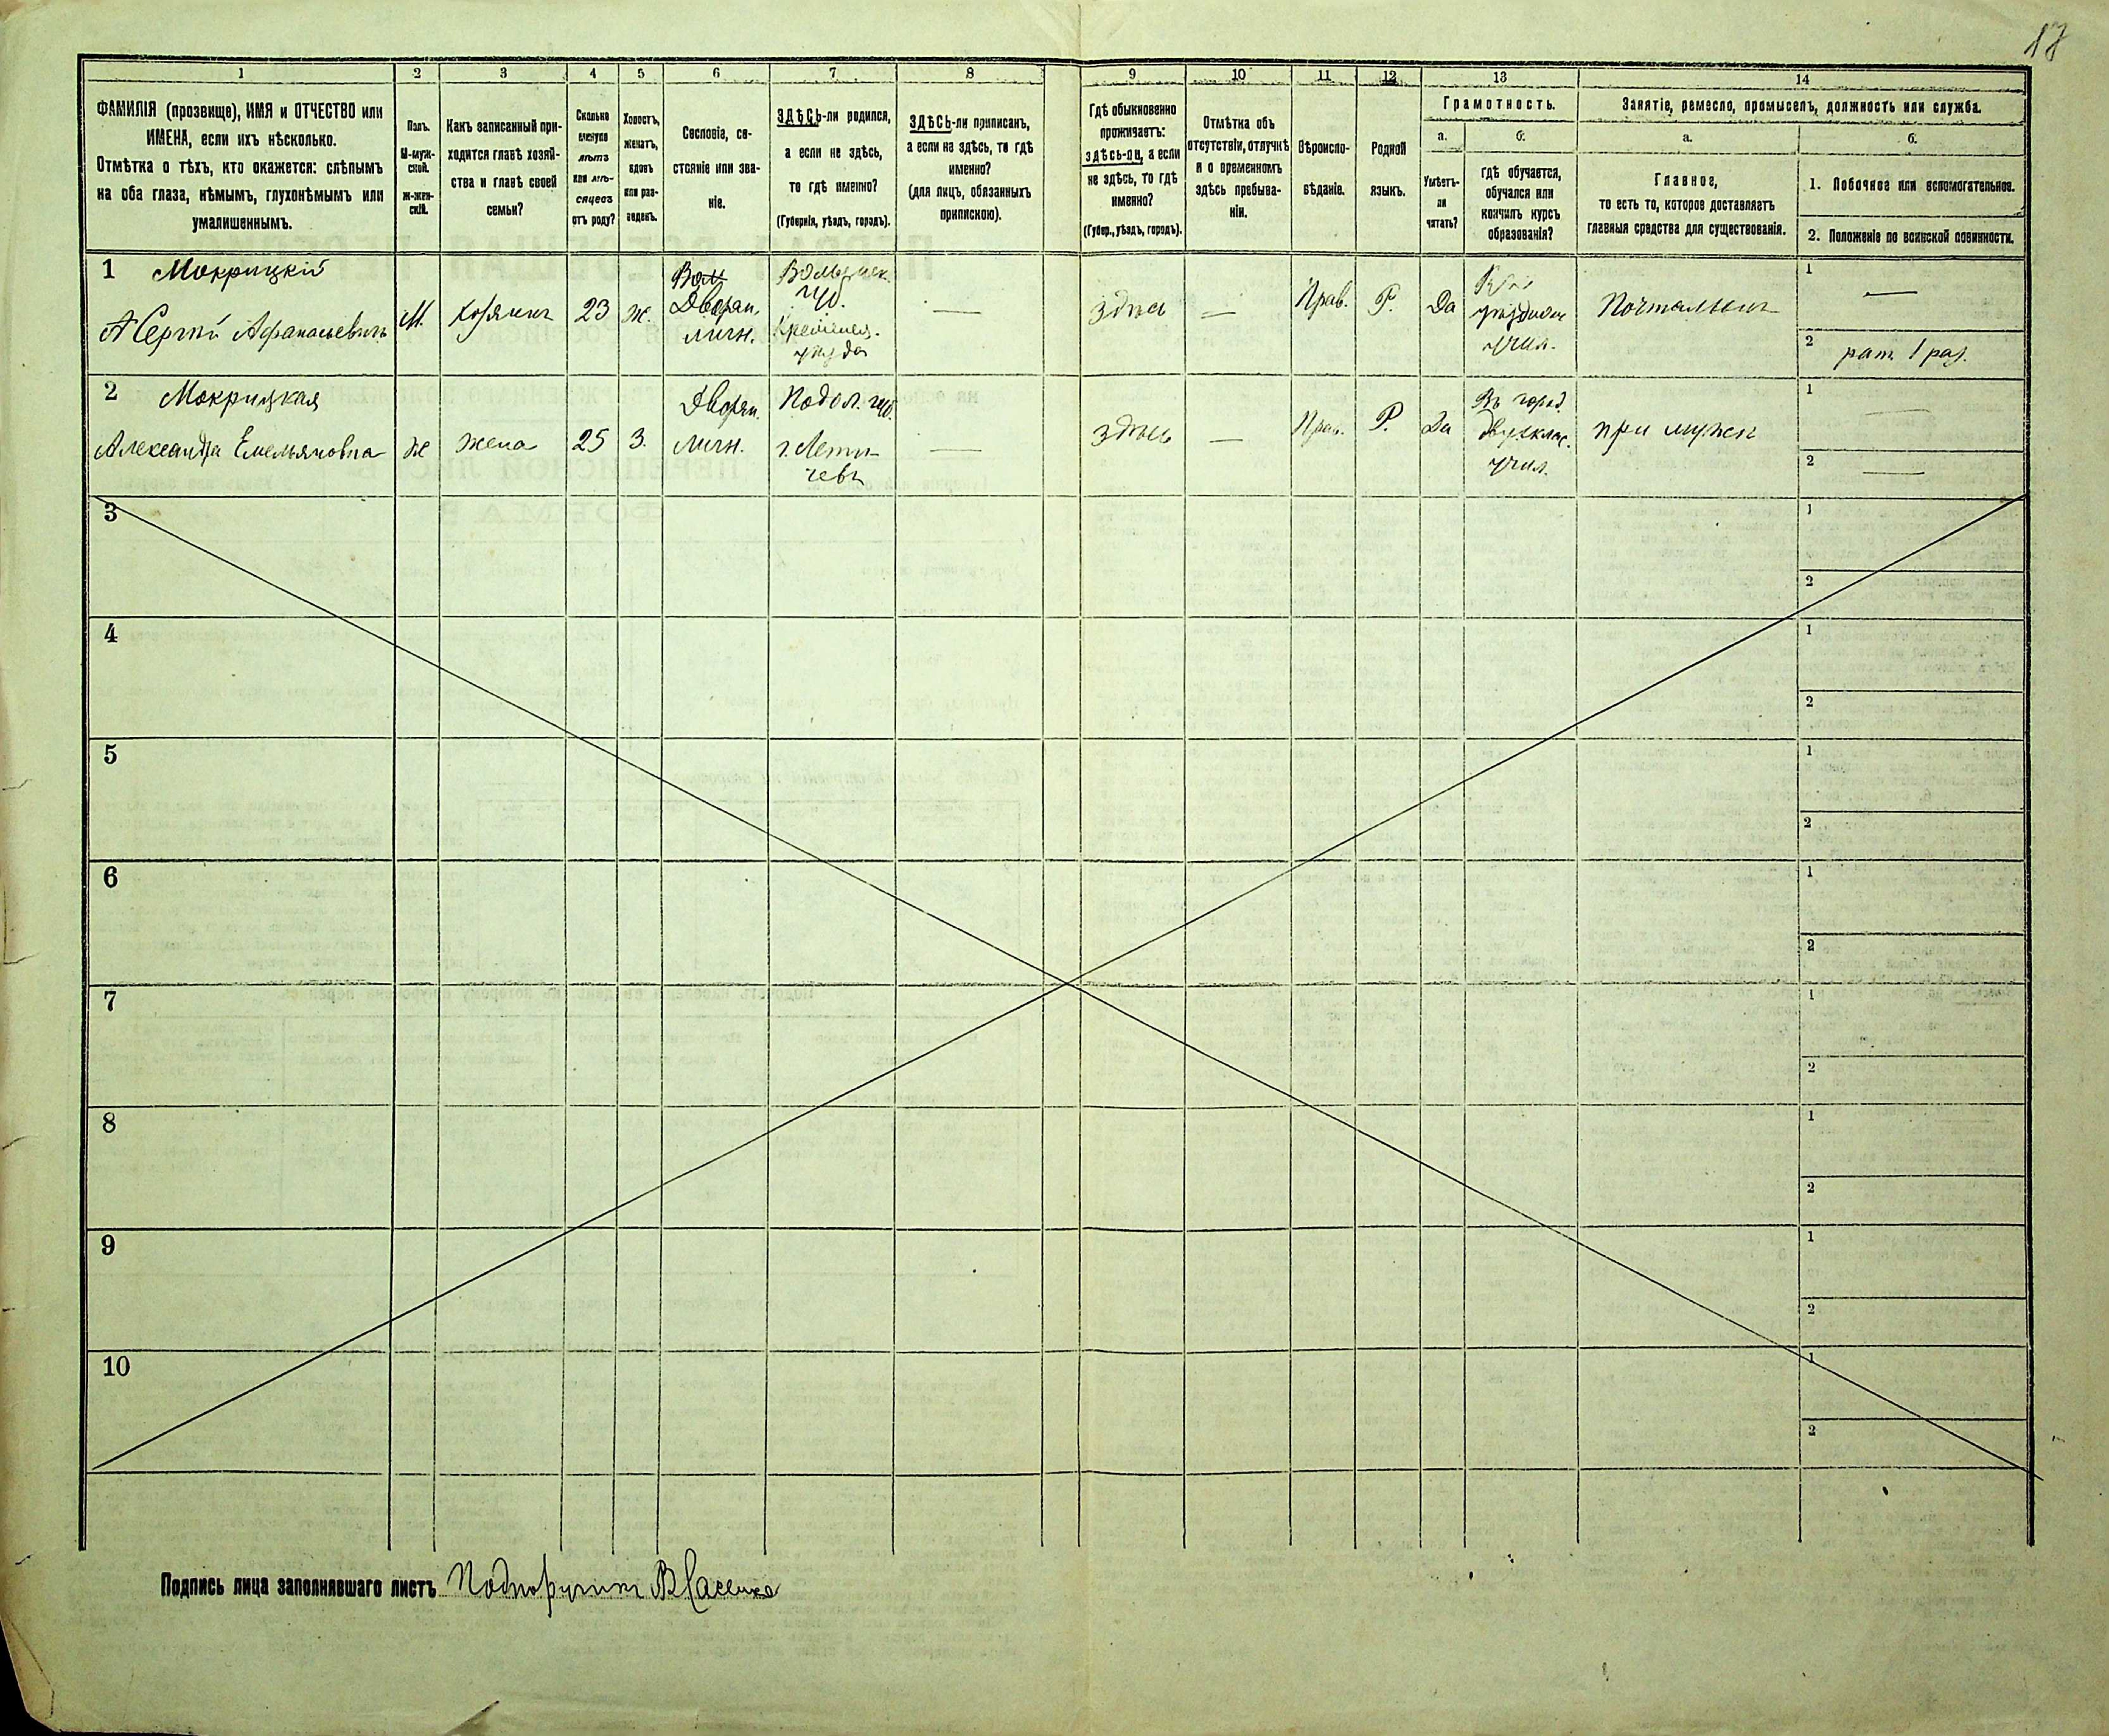 17
1
2
3
4
5
6
7
8
9
10
11
12
13
14
ФАМИЛІЯ (прозвище), ИМЯ и ОТЧЕСТВО или
ИМЕНА, если ихъ нѣсколько.
Отмѣтка о тѣхъ, кто окажется: слѣпымъ
на оба глаза, нѣмымъ, глухонѣмымъ или
умалишеннымъ.
Полъ.
М-муж-
ской.
Ж-жен-
скій.
Какъ записанный при-
ходится главѣ хозяй-
ства и главѣ своей
семьи?
Сколько
минуло
лѣтъ
или мѣ-
сяцевъ
отъ роду?
Холостъ,
женатъ,
вдовъ
или раз-
веденъ.
Сословіе, со-
стояніе или зва-
ніе.
ЗДѢСЬ-ли родился,
а если не здѣсь,
то гдѣ именно?
(Губернія, уѣздъ, городъ).
ЗДѢСЬ-ли приписанъ,
а если не здѣсь, то гдѣ
именно?
(для лицъ, обязанныхъ
припискою).
Гдѣ обыкновенно
проживаетъ:
здѣсь-ли, а если
не здѣсь, то гдѣ
именно?
(Губер., уѣздъ, городъ).
Отмѣтка объ
отсутствіи, отлучкѣ
и о временномъ
здѣсь пребыва-
ніи.
Вѣроиспо-
вѣданіе.
Родной
языкъ.
Грамотность.
а.
Умѣетъ-
ли
читать?
б.
гдѣ обучается,
обучался или
кончилъ курсъ
образованія?
Занятіе, ремесло, промыселъ, должность или служба.
а.
Главное,
то есть то, которое доставляетъ
главныя средства для существованія.
б.
1. Побочное или вспомогательное.
2. Положеніе по воинской повинности.
1 Мокрицкій
Сергѣй Афанасьевичъ
М.
хозяинъ
23
ж.
Дворян.
личн.
Волынск.
губ.
Кременец.
уѣзда
—
здѣсь
—
Прав.
Р.
Да
уѣздномъ
учил.
Почтальонъ
1 —
2 рат. 1 раз.
2 Мокрицкая
Александра Емельяновна
ж
жена
25
З.
Дворян.
личн.
Подол. губ.
г. Лети-
чевъ
—
здѣсь
—
Прав.
Р.
Да
Въ город.
двухклас.
учил.
при мужѣ
1 —
2 —
3
1
2
4
1
2
5
1
2
6
1
2
7
1
2
8
1
2
9
1
2
10
1
2
Подпись лица заполнявшаго листъ Подпоручикъ